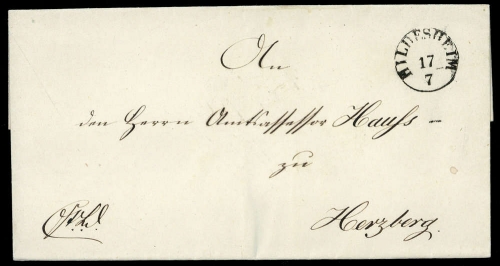 HILDESHEIM
17
7
An
den Herrn Amtsassessor Hauss
zu
Herzberg.